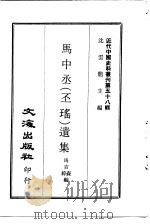 近代中國史料叢刊第五十八輯
沈雲龍主編
馬中丞（丕瑤）遺集
馬吉森
編
文海出版社
印行